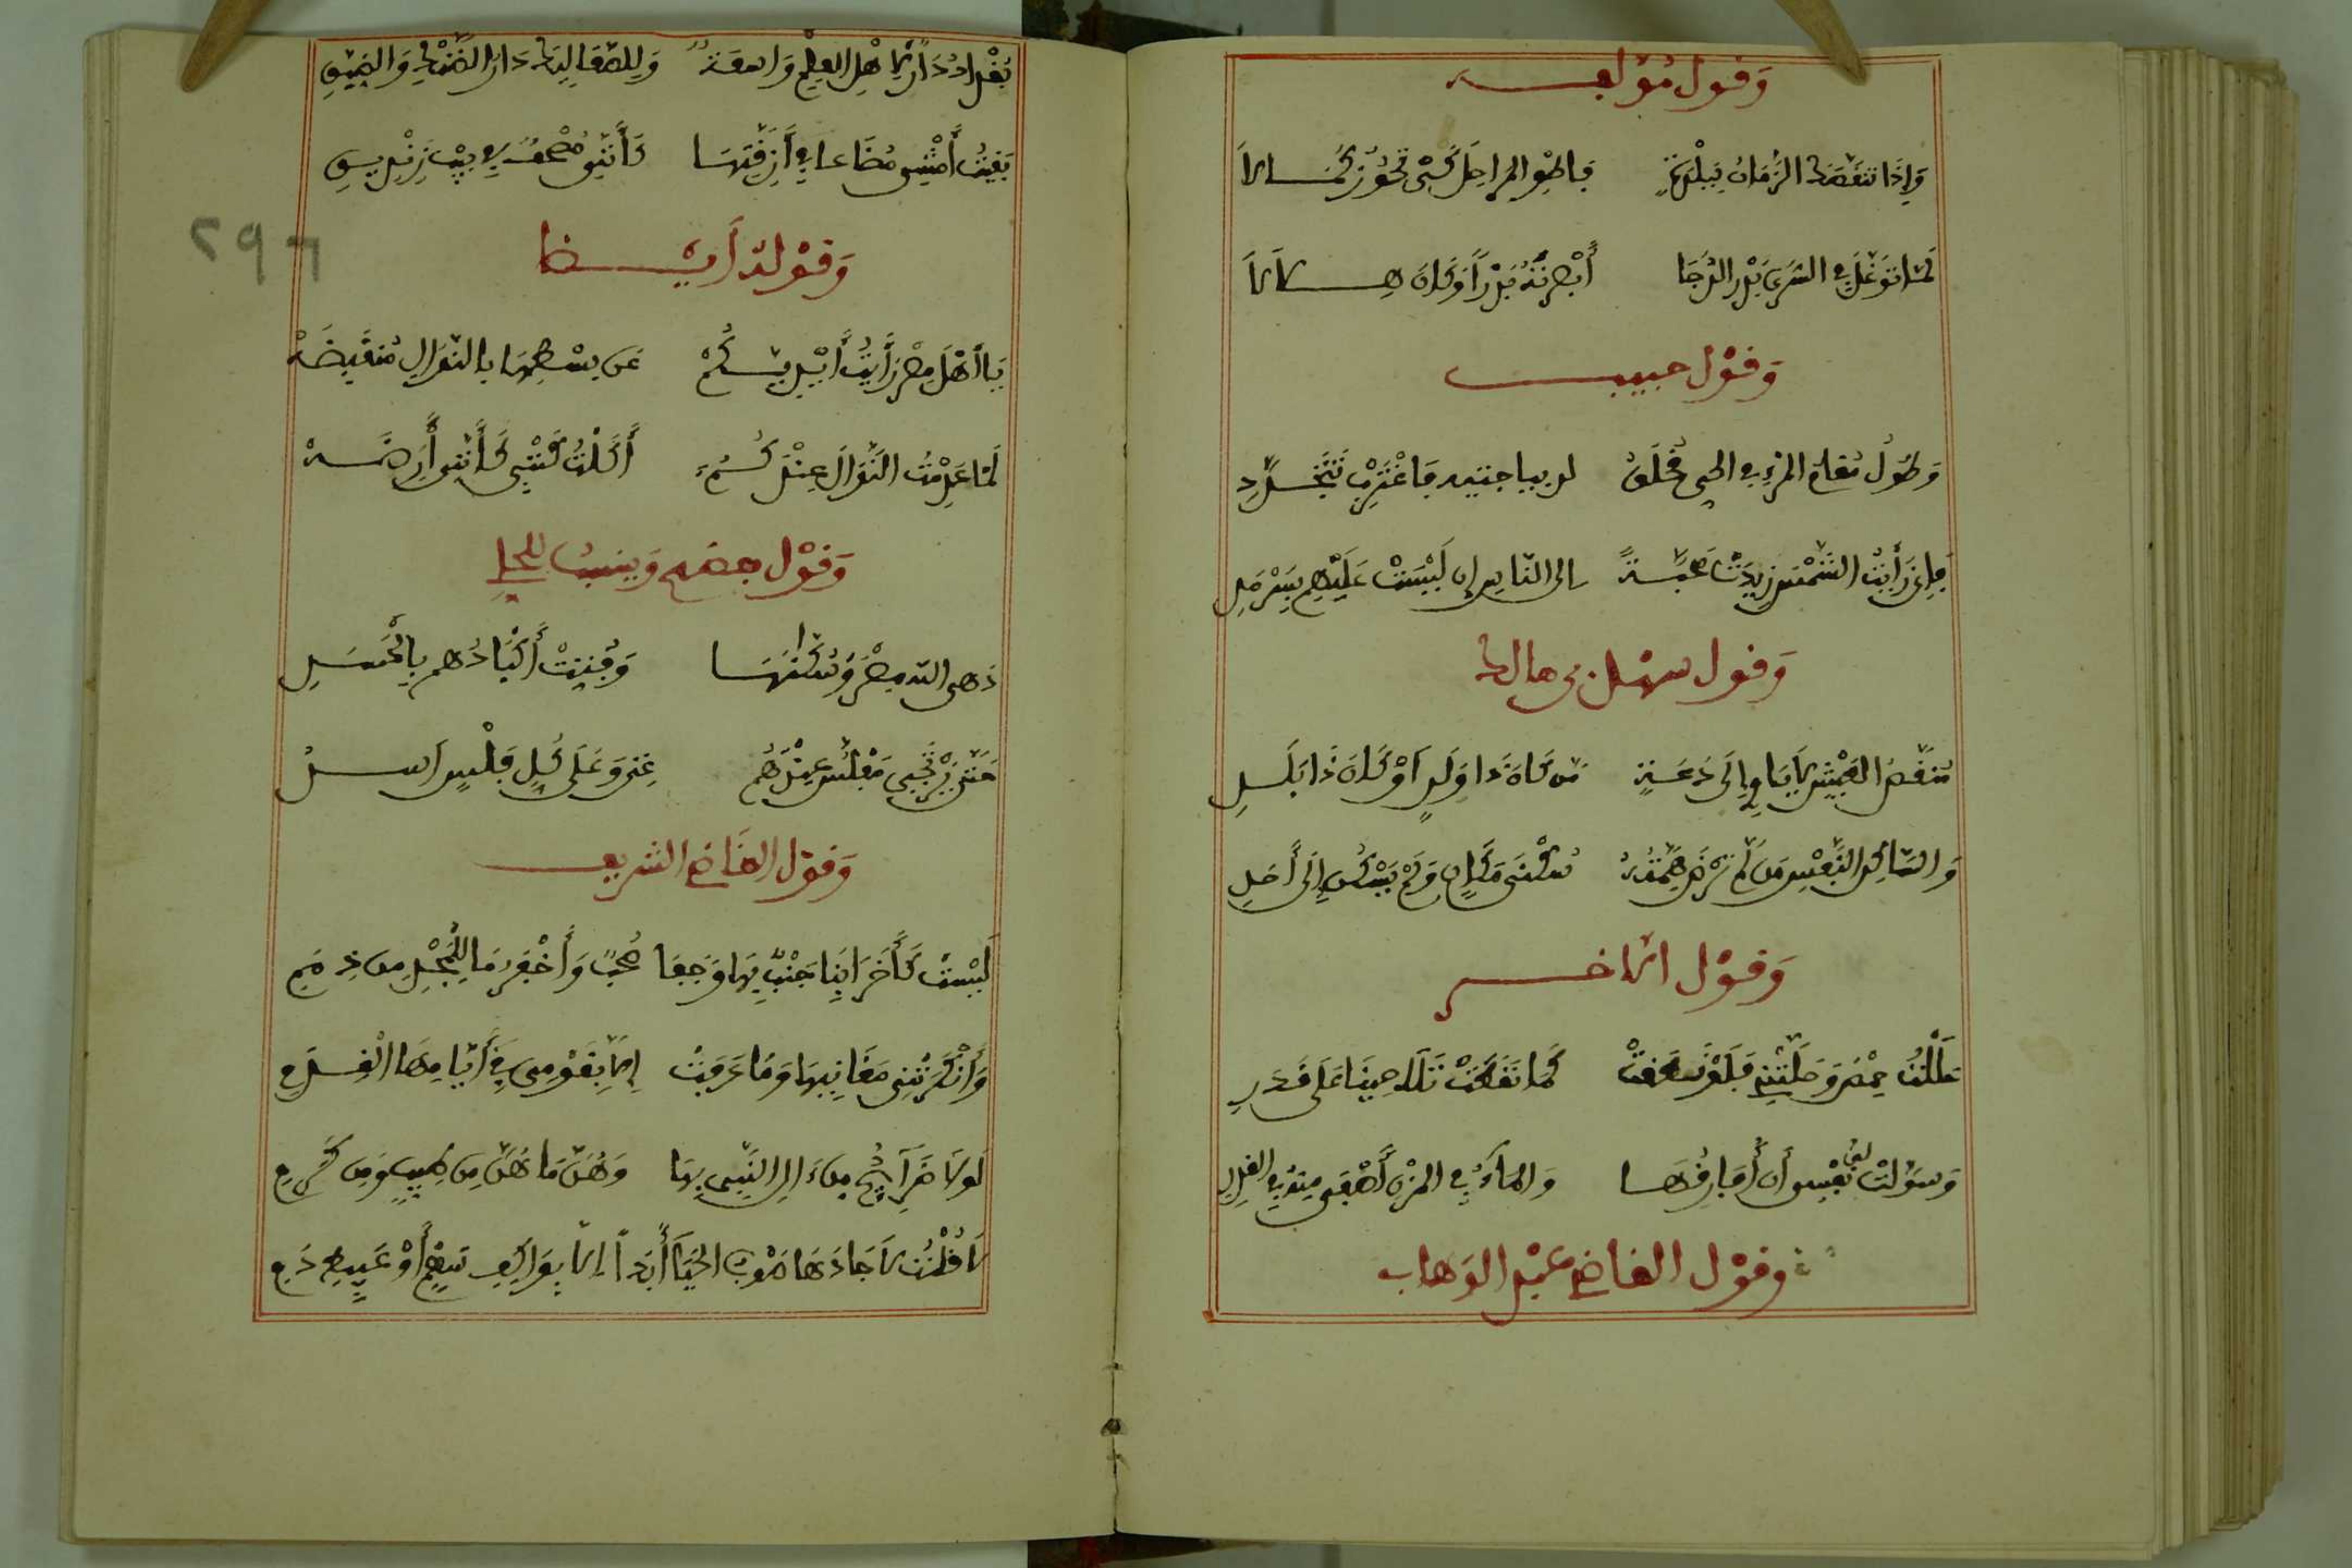 وقول مؤلفه
وإذا تنقصك الزمان ببلدة فاطو المراحل كي تحوز كمالا
لما توغل في السرى بدر الدجا أبصرته بدرا وكان هلالا
وقول حبيب
وطول مقام المرء في الحي مخلق لديباجتيه فاغترب تتجدد
فإني رأيت الشمس زيدت محبة إلى الناس إن ليست عليهم بسرمد
وقول سهل بن مالك
منغص العيش لا يأوي إلى دعة من كان ذا ولد أو كان ذا بلد
والساكن النفس من لم ترض همته سكنى مكان ولم يسكن إلى أحد
وقول الآخر
حللت حمص وحلتني فلا
كما على قدر
وسولت لي نفسي أن أفارقها والماء في المزن أصفى منه في الغدر
وقول القاضي عبد الوهاب
بغداد دار لأهل العلم واسعة وللصعاليك دار الضنك والضيق
بقيت أمشي مضاعا في أزقتها كأنني مصحف في بيت زنديق
وقوله أيضا
يا أهل مصر رأيت أيديكم عن بسطها بالنوال منقبضه
لما عدمت النوال عندكم أكلت كتبي كأنني أرضه
وقول بعضهم وينسب للحلي
دهى الله مصر وسكانها وفتت أكبادهم بالحسد
متى يرتجي مفلس عندهم غنى وعلى كل فلس أسد
وقول القاضي الشريف
ليست كأخرى نبا جنبي بها وجفا صحبي وأخفر ما للمجد من ذمم
وأنكرتني مغانيها وما عرفت إلا بقومي في أيامها القدم
لولا ضرائح من آل النبي بها وهن ما هن من طيب ومن كرم
لا قلت لا جادها صوب الحيا أبدا إلا بواكف سقم أو عبيط دم
٢٩٦